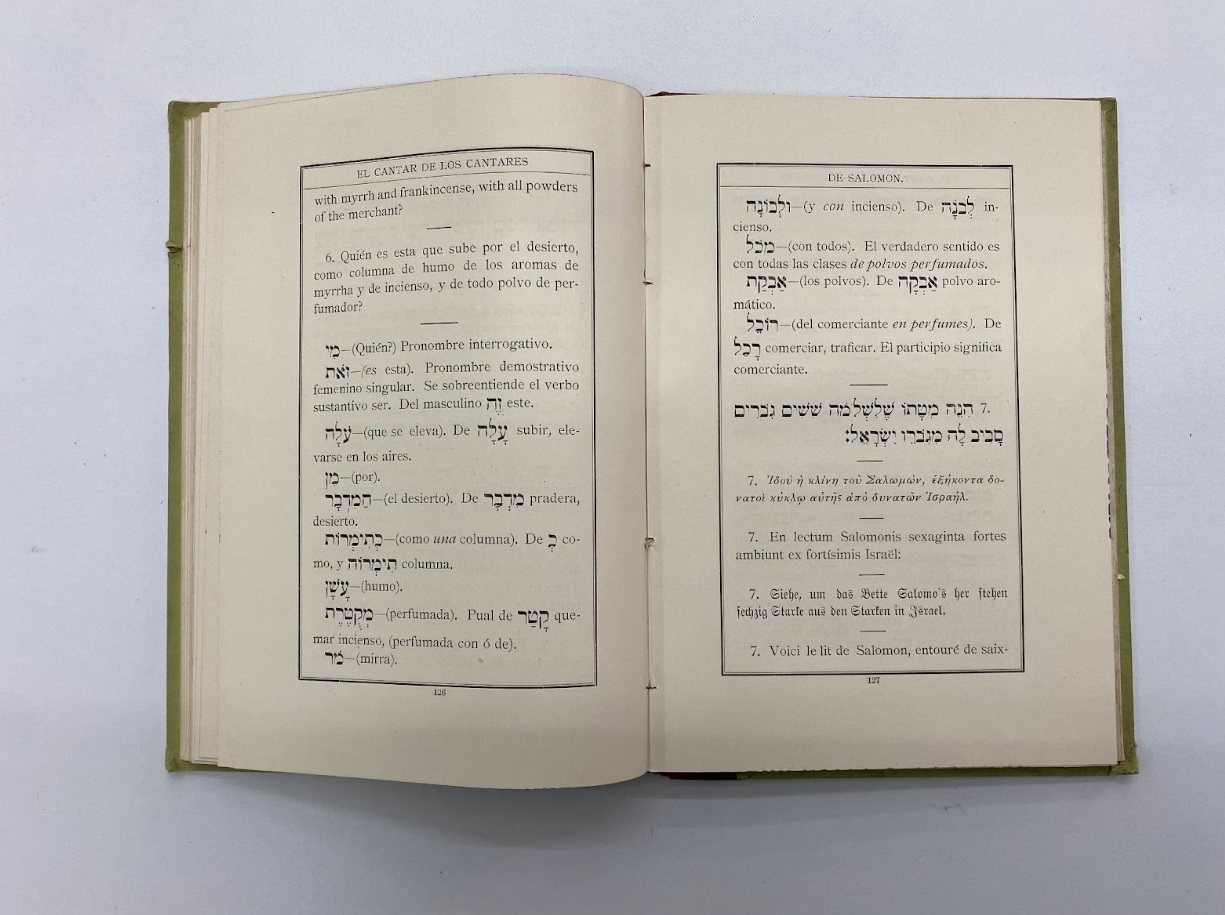 EL CANTAR DE LOS CANTARES
with myrrh and frankincense, with all powders
of the merchant?
6. Quién es esta que sube por el desierto,
como columna de humo de los aromas de
myrrha y de incienso, y de todo polvo de per-
fumador?
מִי—(Quién?) Pronombre interrogativo.
זאֹת—(es esta). Pronombre demostrativo
femenino singular. Se sobreentiende el verbo
sustantivo ser. Del masculino זֶה este.
עֹלָה—(que se eleva). De עָלָה subir, ele-
varse en los aires.
מִן—(por).
הַמִּדְבָּר—(el desierto). De מִדְבָּר pradera,
desierto.
כְּתִימְרוֹת—(como una columna). De כְּ co-
mo, y תִימְרוֹה columna.
עָשָׁן—(humo).
מְקֻטֶּרֶת—(perfumada). Pual de קָטַר que-
mar incienso, (perfumada con ó de).
מֹר—(mirra).
126
DE SALOMON.
וּלְבוֹנָה—(y con incienso). De לְבֹנָה in-
cienso.
מִכֹּל—(con todos). El verdadero sentido es
con todas las clases de polvos perfumados.
אַבְקַת—(los polvos). De אַבְקָה polvo aro-
mático.
רוֹכֵל—(del comerciante en perfumes). De
רָכַל comerciar, traficar. El participio significa
comerciante.
7. הִנֵּה מִטָּתוֹ שֶׁלִּשְׁלֹמֹה שִׁשִּׁים גִּבֹּרִים
סָבִיב לָהּ מִגִּבֹּרֵי יִשְׂרָאֵל׃
7. Ἰδού ἡ κλίνη τοῦ Σαλωμών, ἑξήκοντα δυ-
νατοὶ κύκλῳ αὐτῆς ἀπό δυνατῶν Ἰσραήλ.
7. En lectum Salomonis sexaginta fortes
ambiunt ex fortísimis Israël:
7. Siehe, um das Bette Salomo's her stehen
sechzig Starke aus den Starken in Israel.
7. Voici le lit de Salomon, entouré de saix-
127